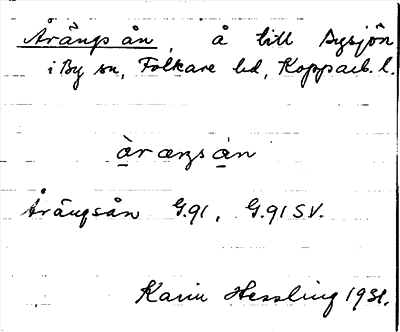 Årängsån, å till Dysjön
i By sn, Folkare hd, Kopparb. l.
å̀rængsån
Årängsån G.91, G.91 SV.
Karin Hessling 1931.